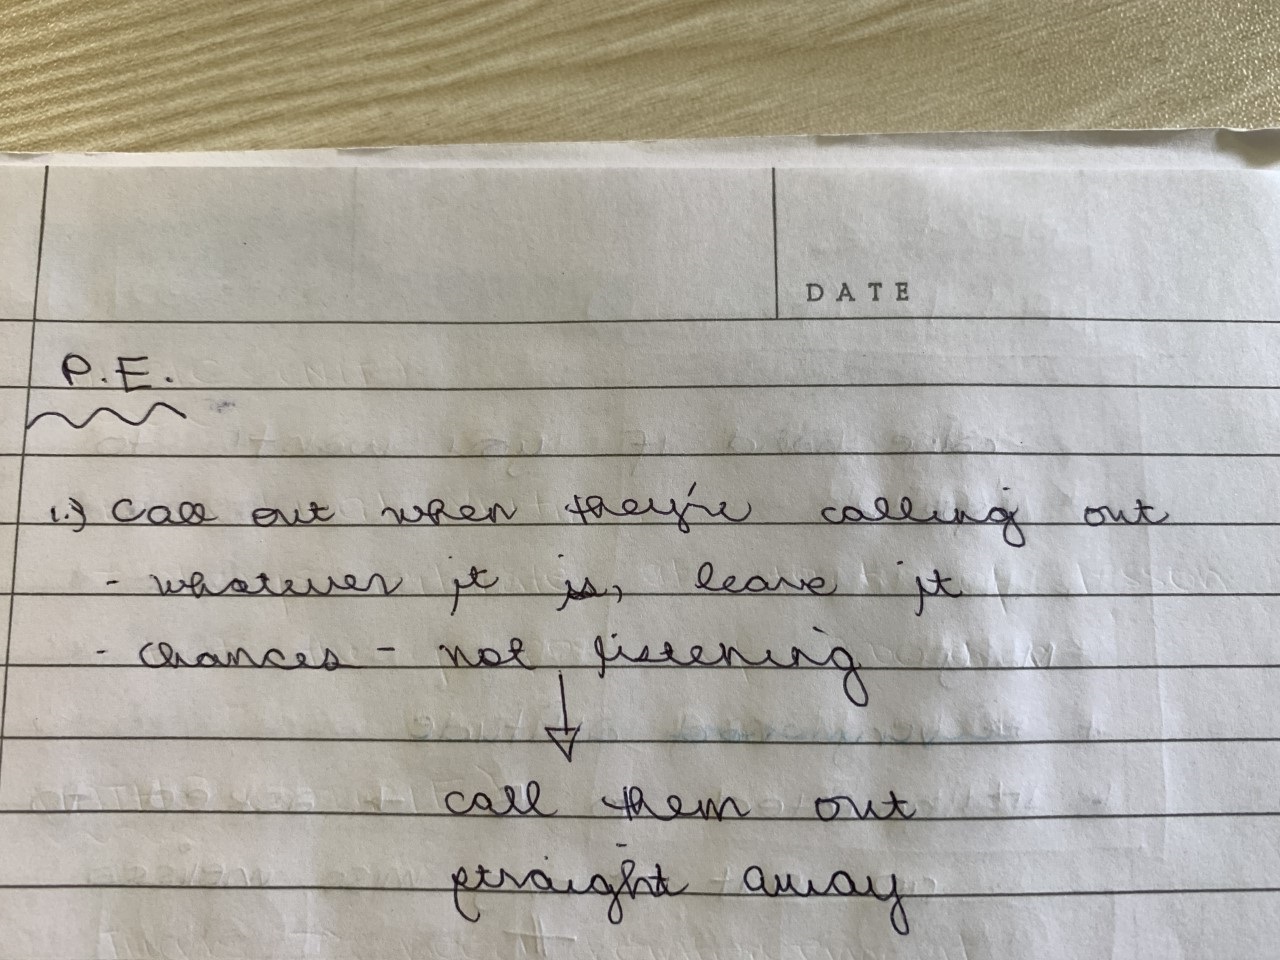 DATE
P.E.
1.) Call out when they're calling out
- whatever it is, leave it
- chances - not listening
↓
call them out
straight away